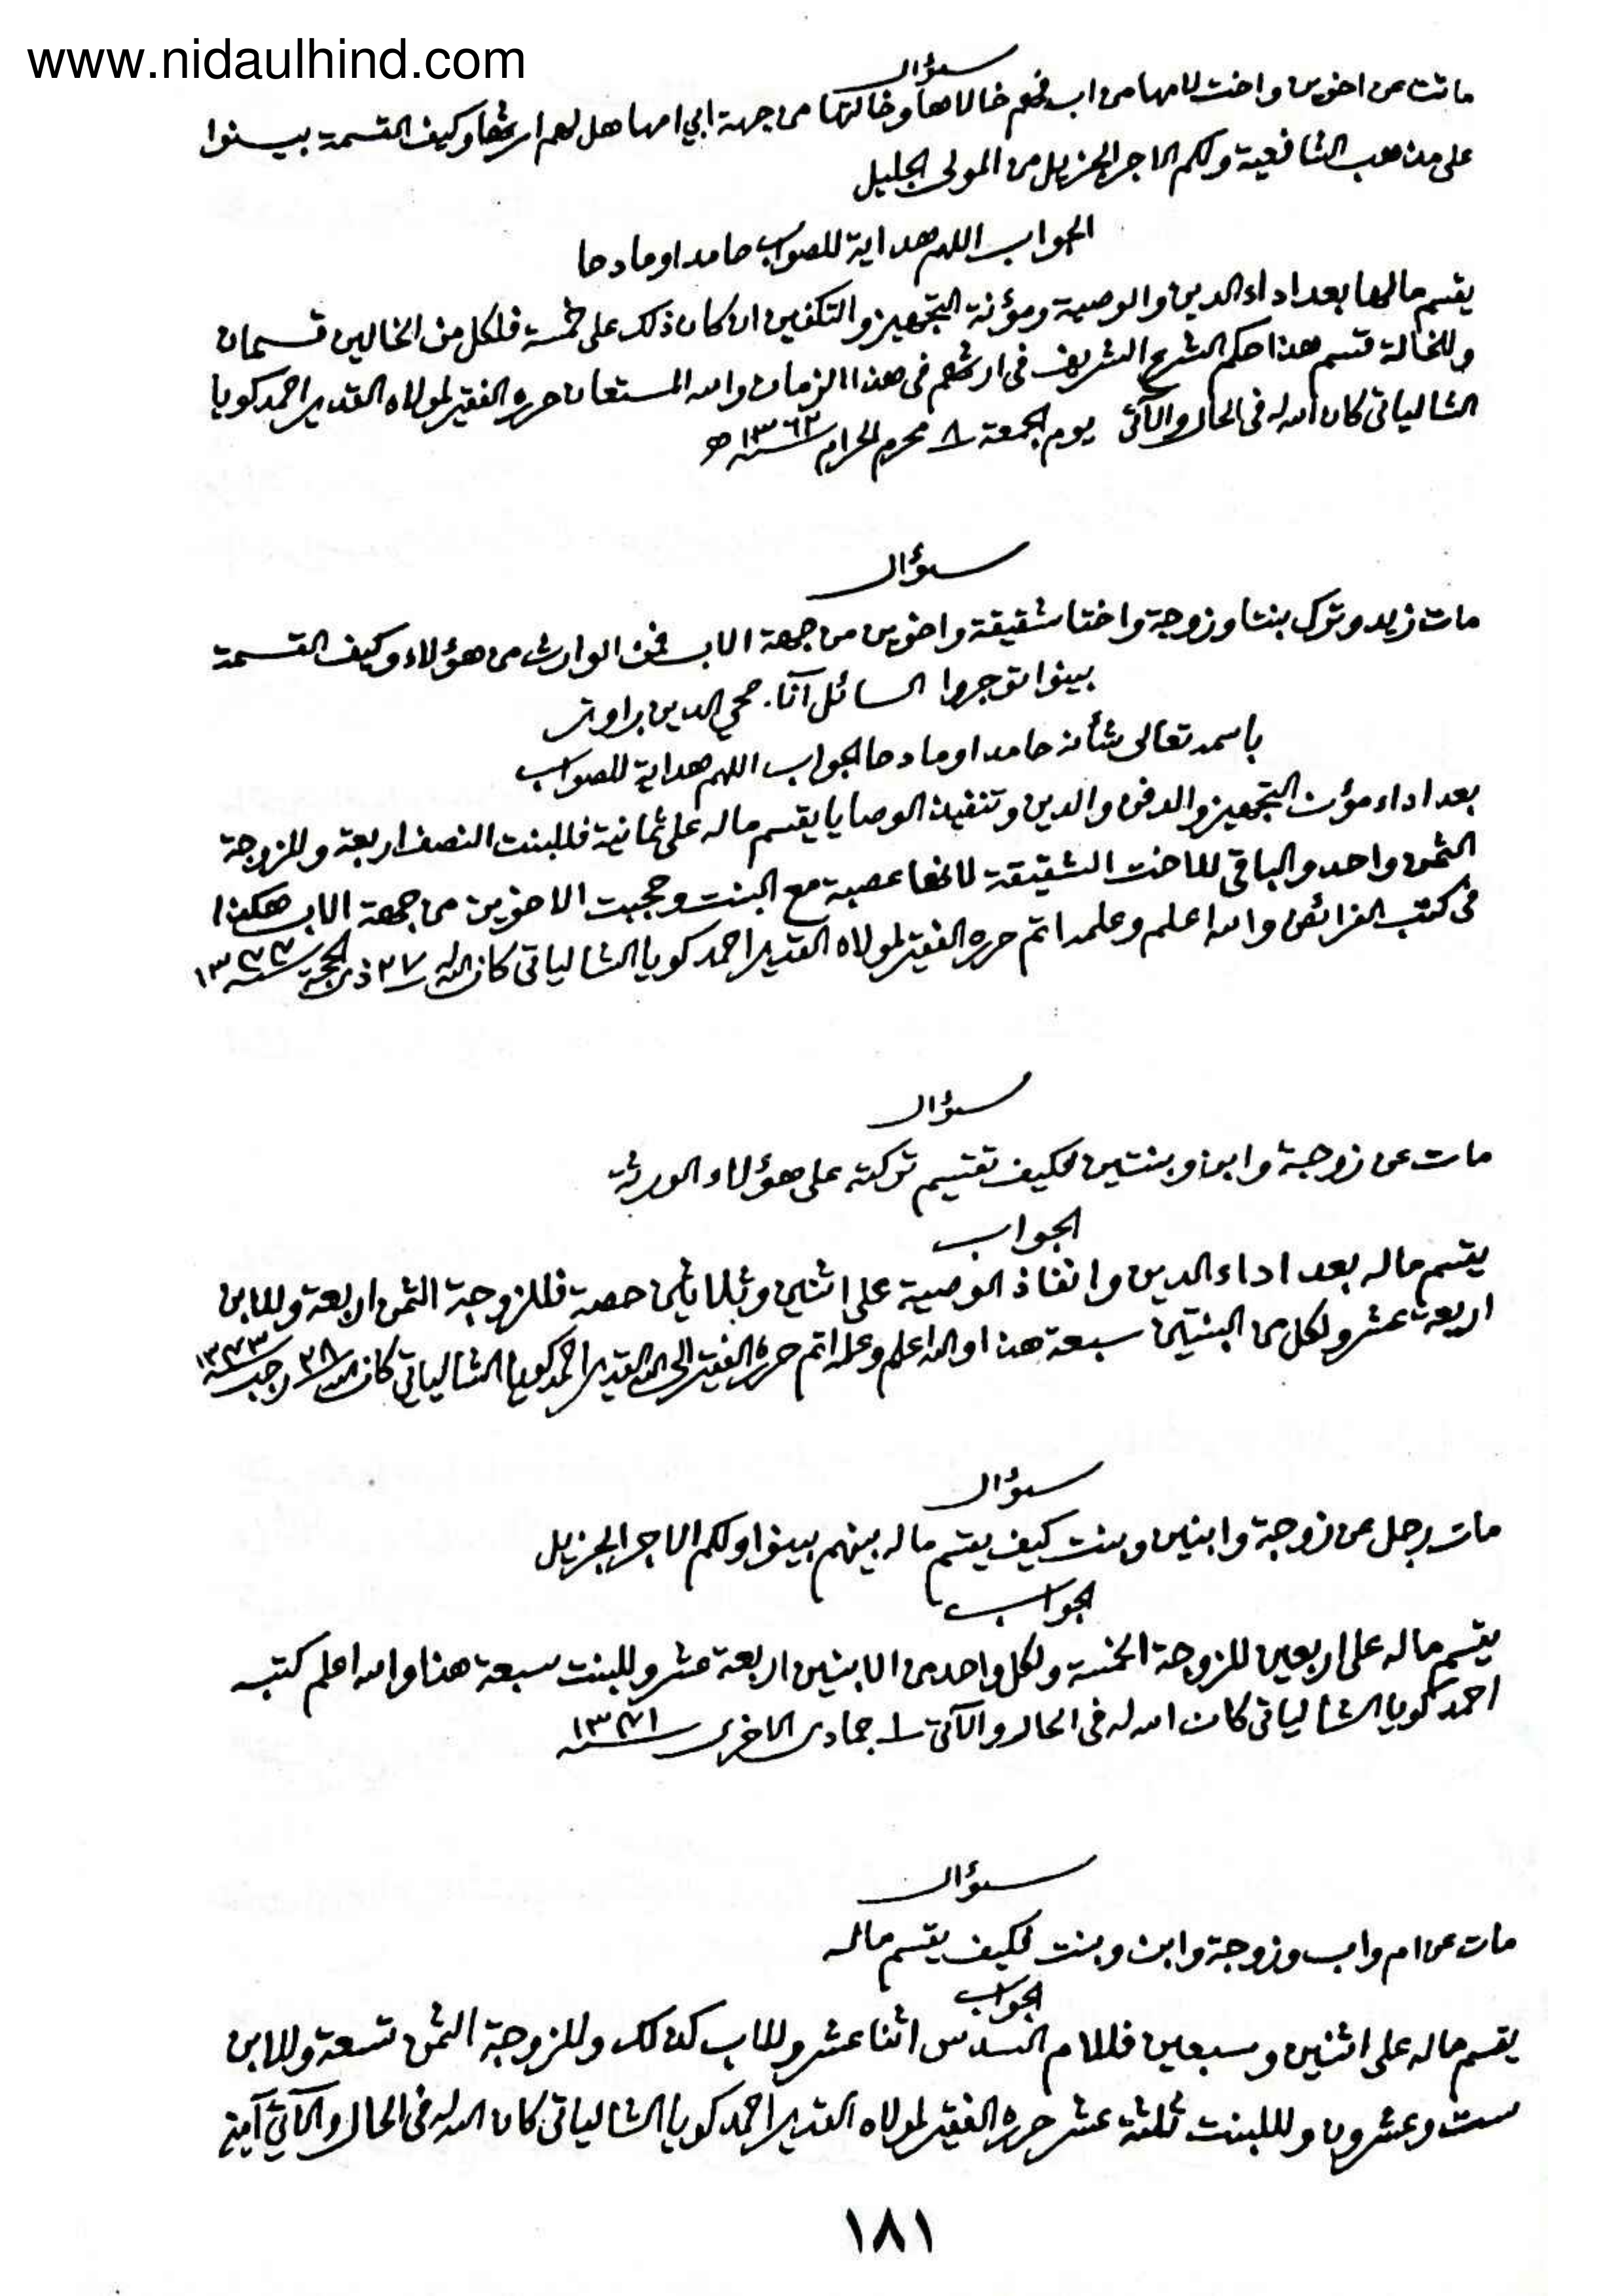 www.nidaulhind.com
سؤال
ماتت عن اخوين واخت لامها من اب فهم خالاها وخالتها من جهة ابي امها هل لهم ارثها وكيف القسمة بينوا
على مذهب الشافعية ولكم الاجر الجزيل من المولى الجليل
الجواب اللهم هداية للصواب حامدا ومادحا
يقسم مالها بعد اداء الدين والوصية ومؤنة التجهيز والتكفين ان كان ذلك على خمسة فلكل من الخالين قسمان
وللخالة قسم هذا حكم الشرع الشريف في ارثهم في هذا الزمان والله المستعان حرره الفقير لمولاه القدير احمد كويا
الشالياتي كان الله له في الحال والآتي يوم الجمعة ٨ محرم الحرام سنة ١٣٦٣ ھ
سؤال
مات زيد وترك بنتا وزوجة واختا شقيقة واخوين من جهة الاب فمن الوارث من هؤلاء وكيف القسمة
بينوا توجروا السائل آنا. محي الدين راوتر
باسمه تعالى شأنه حامدا ومادحا الجواب اللهم هداية للصواب
بعد اداء مؤن التجهيز والدفن والدين وتنفيذ الوصايا يقسم ماله على ثمانية فللبنت النصف اربعة وللزوجة
الثمن واحد والباقي للاخت الشقيقة لانها عصبة مع البنت وحجبت الاخوين من جهة الاب هكذا
في كتب الفرائض والله اعلم وعلمه اتم حرره الفقير لمولاه القدير احمد كويا الشالياتي كان الله له ٢٧ ذي الحجة سنة ١٣٧٣
سؤال
مات عن زوجة وابن وبنتين فكيف تقتسم تركته على هؤلاء الورثة
الجواب
يقسم ماله بعد اداء الدين وانفاذ الوصية على اثنين وثلاثين حصة فللزوجة الثمن اربعة وللابن
اربعة عشر ولكل من البنتين سبعة هذا والله اعلم وعلمه اتم حرره الفقير الى الله القدير احمد كويا الشالياتي كان الله له ٢٨ رجب سنة ١٣٧٣
سؤال
مات رجل عن زوجة وابنين وبنت كيف يقسم ماله بينهم بينوا ولكم الاجر الجزيل
الجواب
يقسم ماله على اربعين للزوجة الخمسة ولكل واحد من الابنين اربعة عشر وللبنت سبعة هذا والله اعلم كتبه
احمد كويا الشالياتي كان الله له في الحال والآتي ١ جمادى الاخرى سنة ١٣٧١
سؤال
مات عن ام واب وزوجة وابن وبنت فكيف يقسم ماله
الجواب
يقسم ماله على اثنين وسبعين فللام السدس اثنا عشر وللاب كذلك وللزوجة الثمن تسعة وللابن
ست وعشرون وللبنت ثلثة عشر حرره الفقير لمولاه القدير احمد كويا الشالياتي كان الله له في الحال والآتي آمين
١٨١